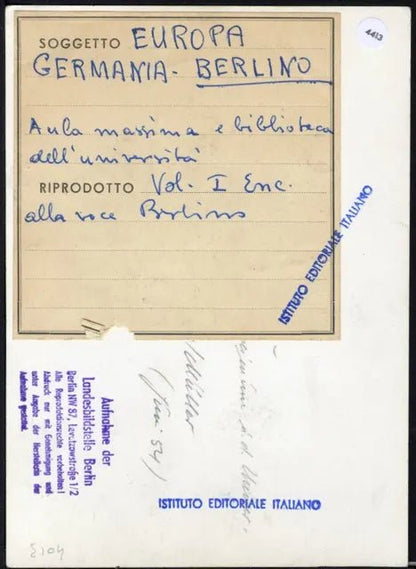 4413
SOGGETTO EUROPA
GERMANIA - BERLINO
Aula massima e biblioteca
dell'università
RIPRODOTTO Vol. I Enc.
alla voce Berlino
ISTITUTO EDITORIALE ITALIANO
Aufnahme der
Landesbildstelle Berlin
Berlin NW 87, Levetzowstraße 1/2
Alle Reproduktionsrechte vorbehalten!
Abdruck nur mit Genehmigung und
unter Angabe der Herstellerin der
Aufnahme gestattet.
(Juni 54)
ISTITUTO EDITORIALE ITALIANO